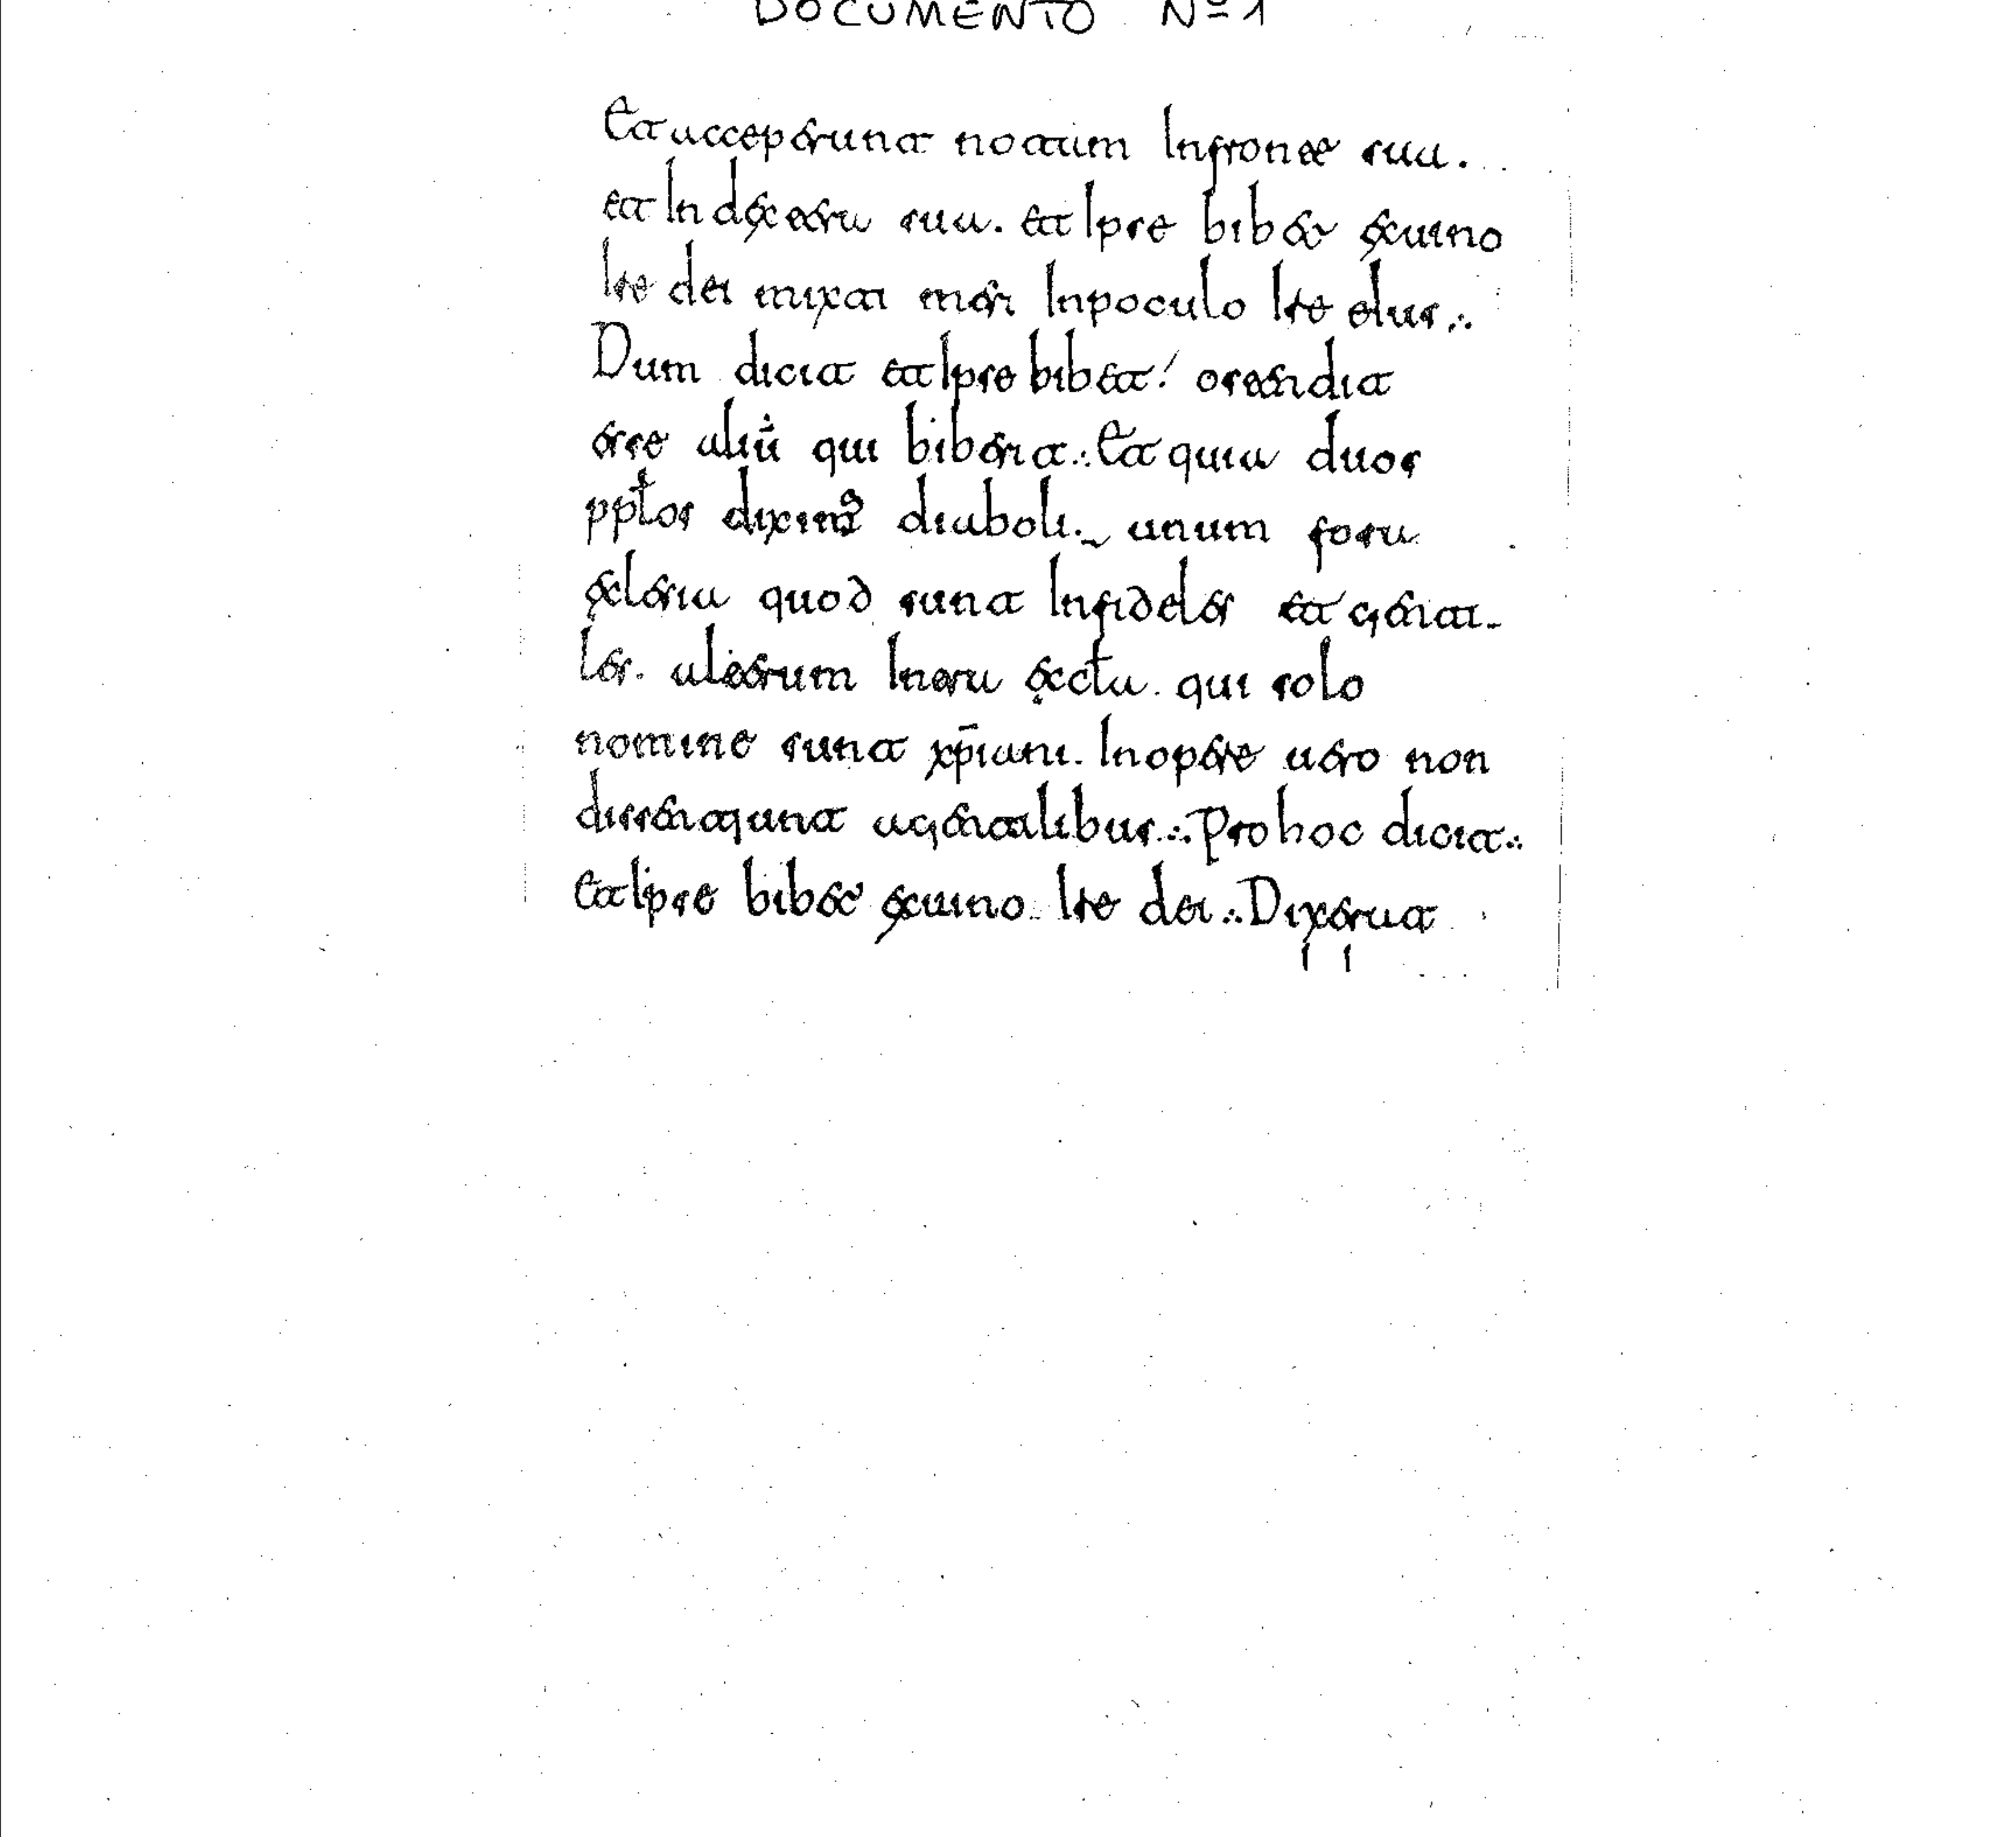 DOCUMENTO Nº 1
Et acceperunt notam In fronte sua.
et In dextera sua. et Ipse bibet ex uino
Ire dei mixti meri In poculo Ire eIus.
Dum dicit et Ipse bibet! ostendit
esse aliū qui biberit. Et quia duos
pptos diximꝰ diaboli. unum foru
ecleria quod sunt Infideles et genti-
les. alterum Intra ecctu. qui solo
nomine sunt xp̄iani. In opere uero non
dissentiunt a gentilibus. Pro hoc dicit.
Et Ipse bibet ex uino Ire dei. Dixerat